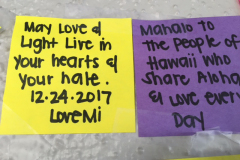 May Love &
Light Live in
your hearts &
your hale.
12.24.2017
LoveMi
Mahalo to
the people of
Hawaii who
share Aloha
& love every
Day